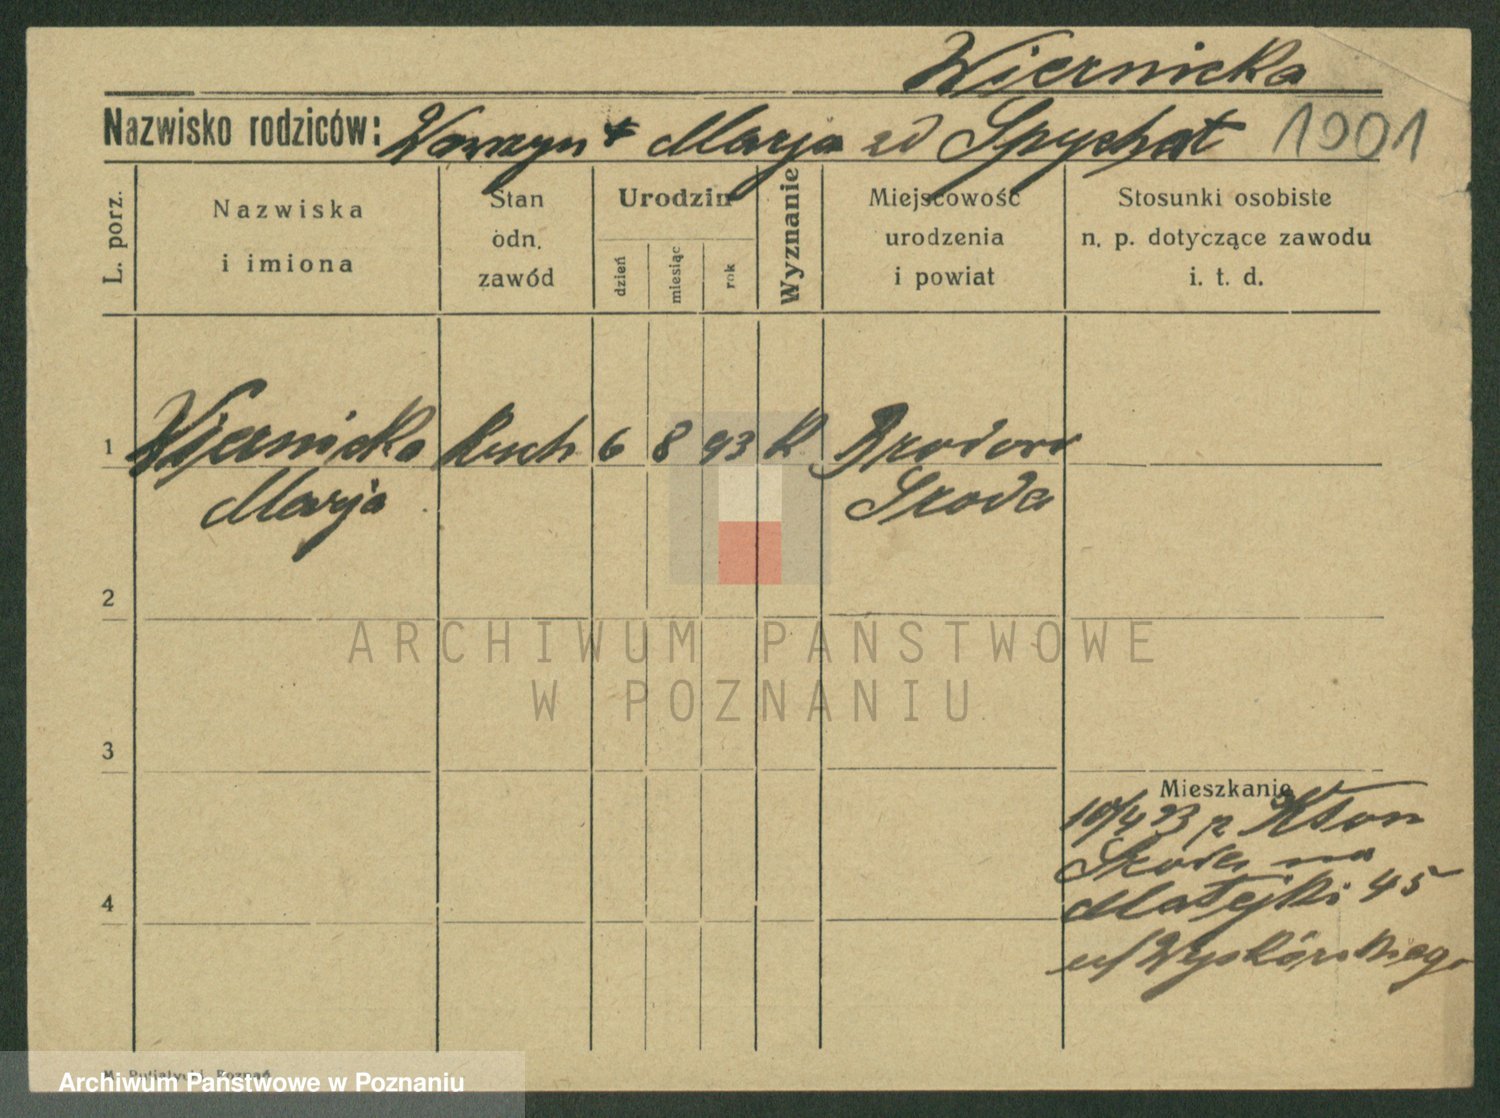 Wiernicka
Nazwisko rodziców: Wawrzyn + Marja zd Spychat 1901
L. porz.
Nazwiska
i imiona
Stan
odn.
zawód
Urodzin
dzień
miesiąc
rok
Wyznanie
Miejscowość
urodzenia
i powiat
Stosunki osobiste
n. p. dotyczące zawodu
i. t. d.
1 Wiernicka kuch 6 8 93 K Brodowo
Marja Środa
2
3
4
Mieszkanie
10/4 33 z
Środa na
Matejki 45
u/Wyskórskiego
ARCHIWUM PAŃSTWOWE
W POZNANIU
M. Putiatycki, Poznań
Archiwum Państwowe w Poznaniu